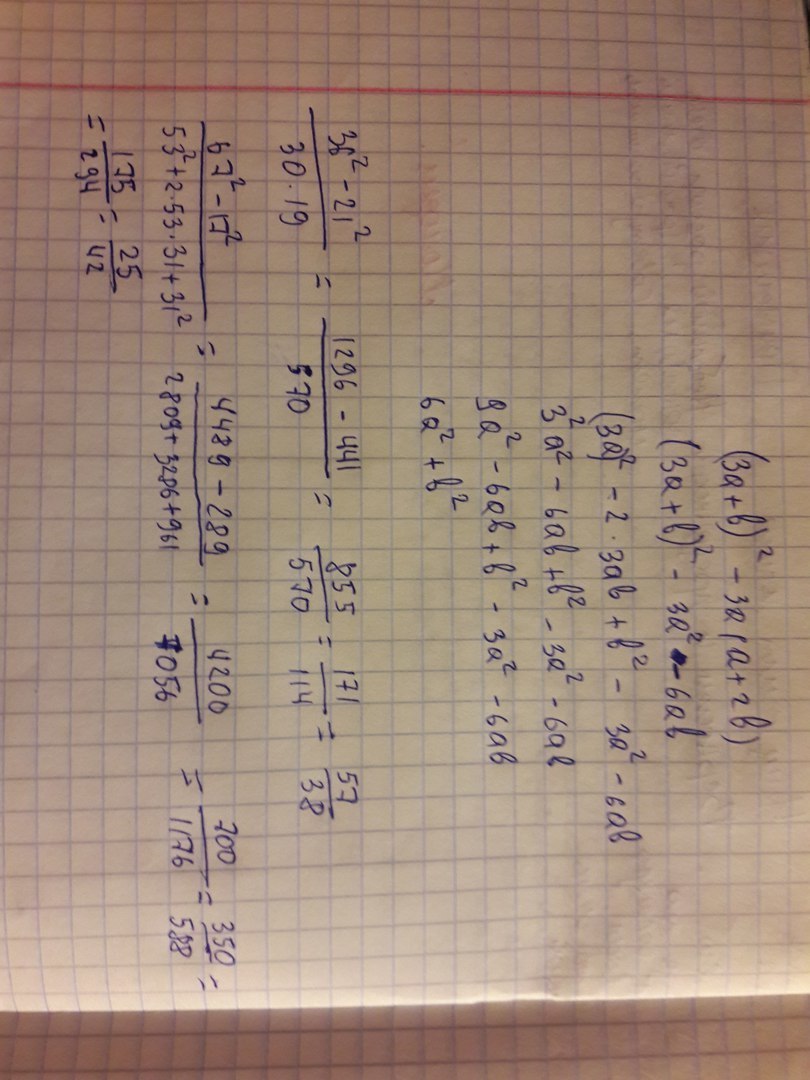 (3a+b)² - 3a(a+2b)
(3a+b)² - 3a² - 6ab
(3a)² - 2·3ab + b² - 3a² - 6ab
3²a² - 6ab + b² - 3a² - 6ab
9a² - 6ab + b² - 3a² - 6ab
6a² + b²
36² - 21² / 30·19 = 1296 - 441 / 570 = 855/570 = 171/114 = 57/38
67² - 17² / 53² + 2·53·31 + 31² = 4489 - 289 / 2809 + 3286 + 961 = 4200/7056 = 700/1176 = 350/588 =
= 175/294 = 25/42